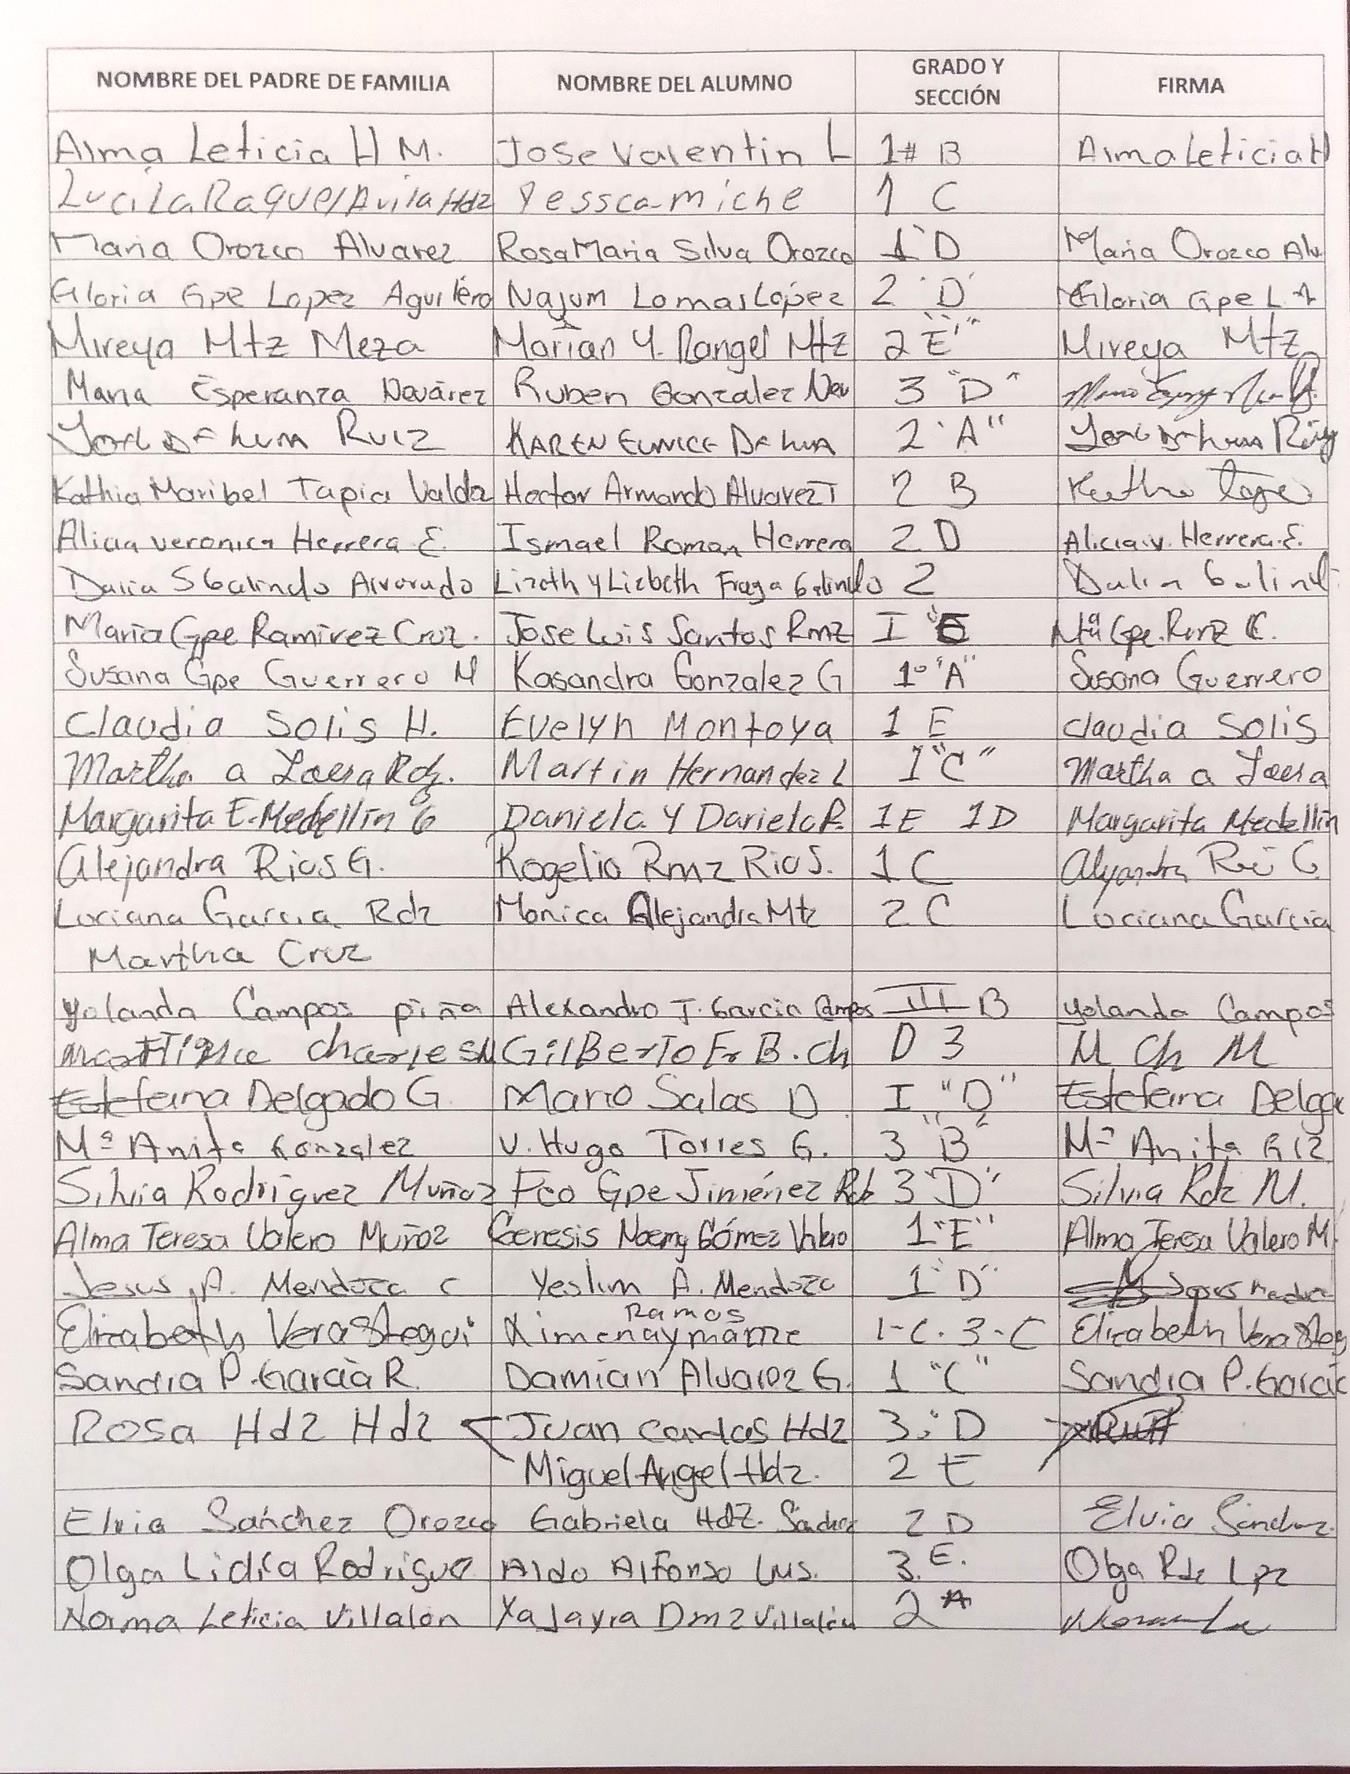 NOMBRE DEL PADRE DE FAMILIA NOMBRE DEL ALUMNO GRADO Y SECCIÓN FIRMA
Alma Leticia H M. Jose Valentin L 1# B Alma Leticia H
Lucila Raquel Avila Hdz Yessca-miche 1 C
Maria Orozco Alvarez Rosa Maria Silva Orozco 1"D Maria Orozco Alv
Gloria Gpe Lopez Aguilero Najum Lomas Lopez 2 "D" Gloria Gpe L A
Mireya Mtz Meza Marian Y. Rangel Mtz 2 "E" Mireya Mtz
Maria Esperanza Nevárez Ruben Gonzalez Nev 3 "D"
DE Luna Ruiz KAREN EUNICE DE LUNA 2 "A" DE Luna Ruiz
Kathia Maribel Tapia Valdz Hector Armando Alvarez T 2 B
Alicia veronica Herrera E. Ismael Roman Herrera 2 D Alicia.v. Herrera.E.
Dalia S Galindo Alvarado Lizeth y Lizbeth Fraga Galindo 2 Dalia Galind
Maria Gpe Ramirez Cruz. Jose Luis Santos Rmz I "E Mª Gpe. Rmz C.
Susana Gpe Guerrero M Kasandra Gonzalez G 1º "A" Susana Guerrero
Claudia Solis H. Evelyn Montoya 1 E Claudia Solis
Martha a Loera Rdz. Martin Hernandez L 1 "C" Martha a Loera
Margarita E. Medellin G Daniela Y Dariela R. 1E 1D Margarita Medellin
Alejandra Rios G. Rogelio Rmz Rios. 1 C Alejandra
Luciana Garcia Rdz Monica Alejandra Mtz 2 C Luciana Garcia
Martha Cruz
Yolanda Campos piña Alexandro J. Garcia Campos III B Yolanda Campos
charles M GilBerTo Fr B. Ch D 3 M Ch M
Estefania Delgado G. Mario Salas D I "D" Estefania Delga
Mª Anita Gonzalez V. Hugo Torres G. 3 "B" Mª Anita Glz
Silvia Rodriguez Muñoz Fco Gpe Jiménez Rdz 3 "D" Silvia Rdz M.
Alma Teresa Valero Muñoz Genesis Noemy Gómez Valero 1 "E" Alma Teresa Valero M.
Jesus A. Mendoza C Yeslim A. Mendoza 1 "D"
Elizabeth Verastegui Ximena y mame Ramos 1-C. 3-C Elizabeth Verasteg
Sandra P. García R. Damían Alvarez G. 1 "C" Sandra P. Garcia
Rosa Hdz Hdz Juan carlos Hdz 3: D
Miguel Angel Hdz. 2 E
Elvia Sanchez Orozco Gabriela Hdz. Sanchez 2 D Elvia Sanchez
Olga Lidia Rodriguez Aldo Alfonso Lms. 3. E. Olga Rdz Lpz
Norma Leticia Villalon Xa Jayra Dmz Villalón 2 A